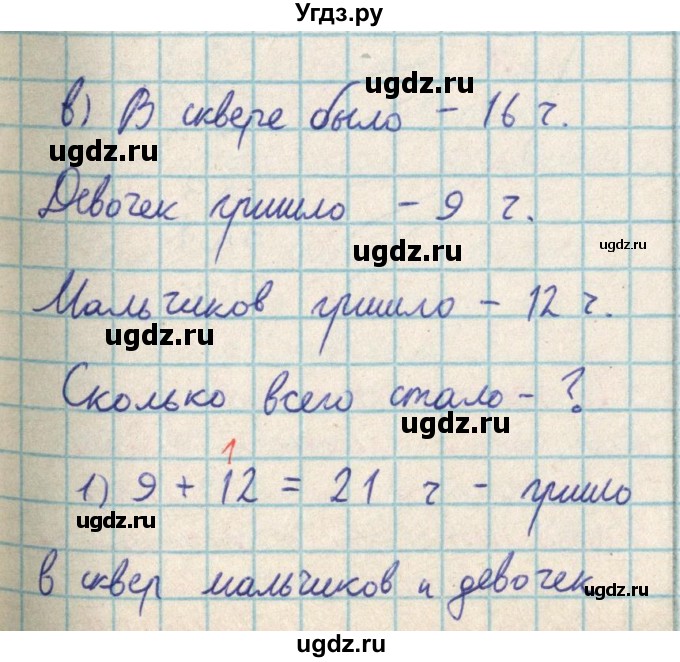 Угдз.ру
ugdz.ru
в) В сквере было - 16 ч.
ugdz.ru
Девочек пришло - 9 ч.
ugdz.ru
ugdz.ru
Мальчиков пришло - 12 ч.
ugdz.ru
Сколько всего стало - ?
ugdz.ru
1
1) 9 + 12 = 21 ч - пришло
ugdz.ru
в сквер мальчиков и девочек
ugdz.ru
ugdz.ru